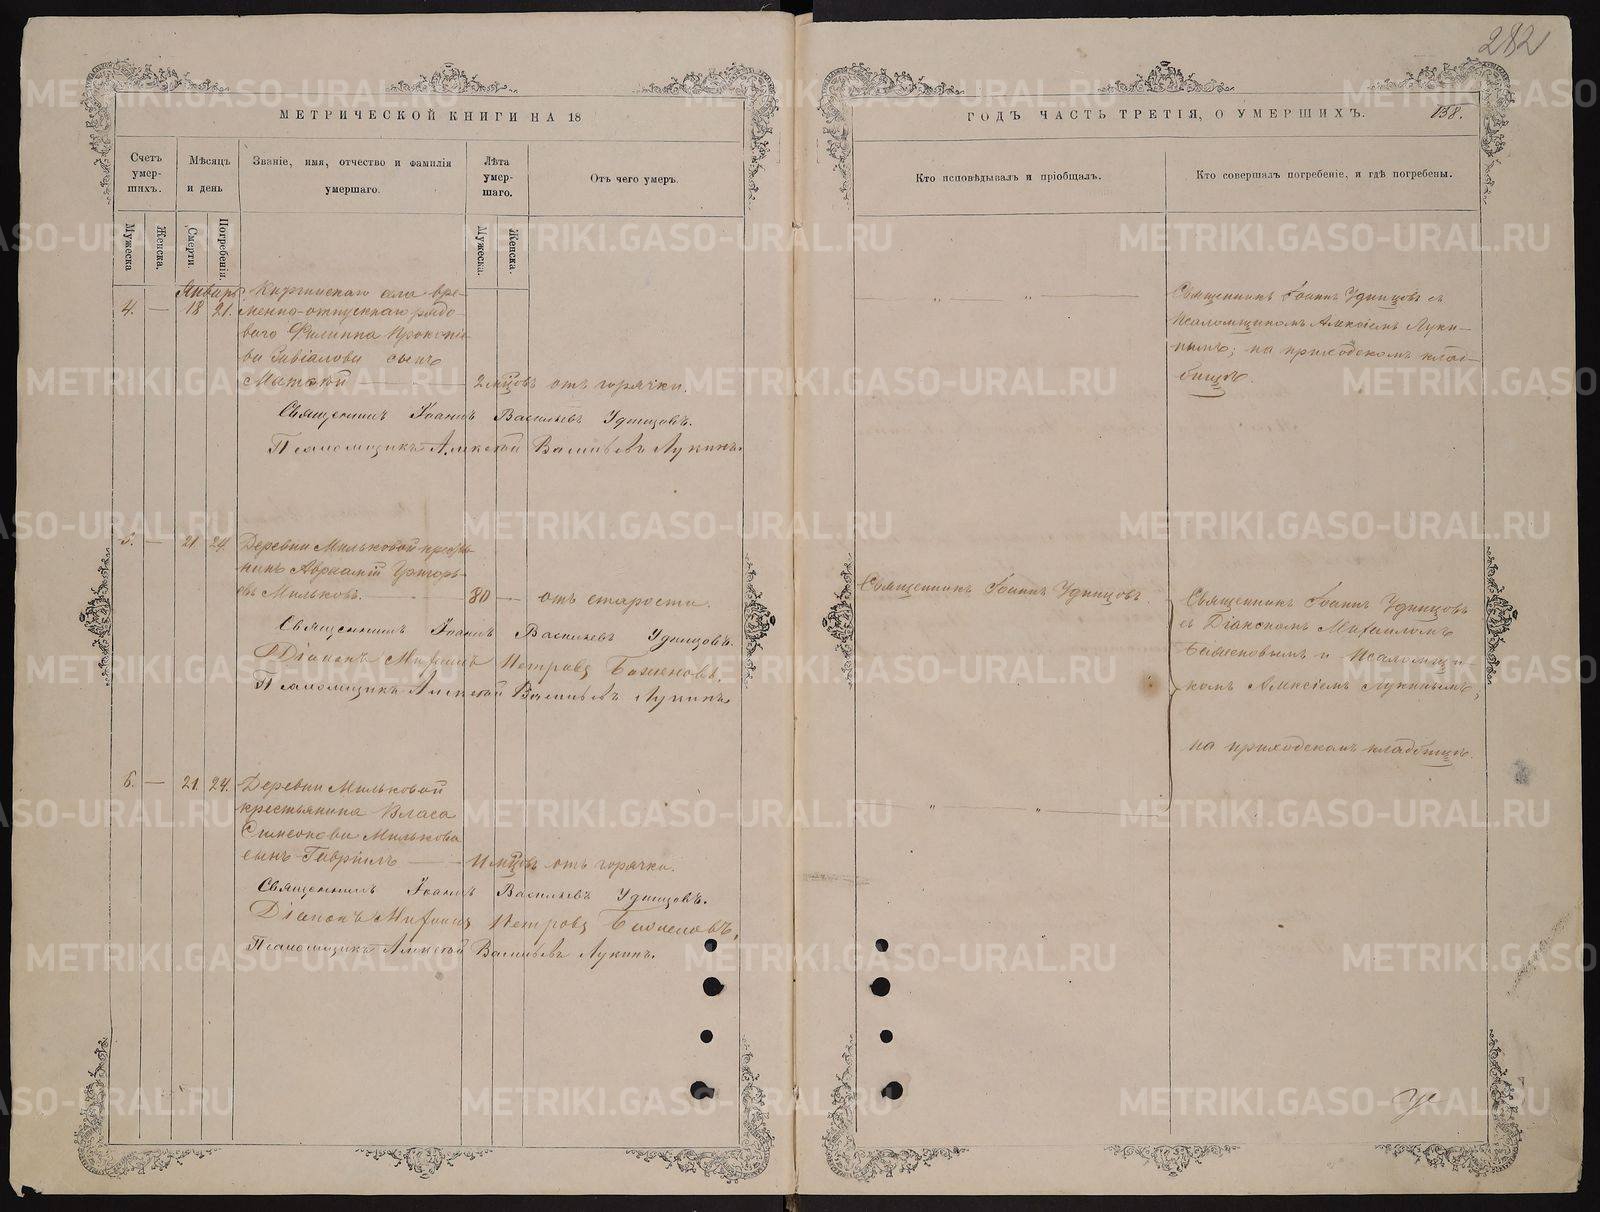 282
МЕТРИЧЕСКОЙ КНИГИ НА 18
Счетъ умер-шихъ.
Мѣсяцъ и день
Званіе, имя, отчество и фамилія умершаго.
Лѣта умер-шаго.
Отъ чего умеръ.
Мужеска
Женска.
Смерти.
Погребенія.
Мужеска.
Женска.
Январь
Киргинскаго села вре-
4. — 18 21. менно-отпускнаго рядо-
ваго Филиппа Прокопіе-
ва Завіалова сынъ
Матѳей — 2 мѣсцовъ отъ горячки.
Священникъ Іоаннъ Васильевъ Удинцовъ.
Псаломщикъ Алексѣй Васильевъ Лукинъ.
5. — 21 24. Деревни Мильковой крестья-
нинъ Авраамій Григорь-
евъ Мильковъ. — 80 — отъ старости.
Священникъ Іоаннъ Васильевъ Удинцовъ.
Діаконъ Михаилъ Петровъ Баженовъ.
Псаломщикъ Алексѣй Васильевъ Лукинъ.
6. — 21. 24. Деревни Мильковой
крестьянина Власа
Симеонова Милькова
сынъ Гавріилъ — 11 мѣсцовъ отъ горячки.
Священникъ Іоаннъ Васильевъ Удинцовъ.
Діаконъ Михаилъ Петровъ Баженовъ,
Псаломщикъ Алексѣй Васильевъ Лукинъ.
ГОДЪ ЧАСТЬ ТРЕТІЯ, О УМЕРШИХЪ.
158.
Кто исповѣдывалъ и пріобщалъ.
Кто совершалъ погребеніе, и гдѣ погребены.
— " " —
Священникъ Іоаннъ Удинцовъ съ
Псаломщикомъ Алексіемъ Луки-
нымъ; на приходскомъ клад-
бищѣ.
Священникъ Іоаннъ Удинцовъ.
Священникъ Іоаннъ Удинцовъ
съ Діакономъ Михаиломъ
Баженовымъ и Псаломщи-
комъ Алексіемъ Лукинымъ;
на приходскомъ кладбищѣ.
— " " —
METRIKI.GASO-URAL.RU